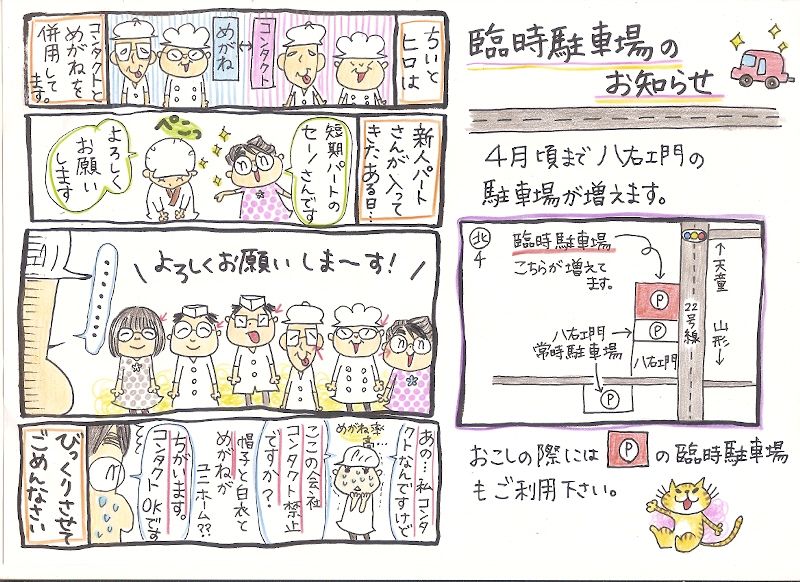 ちいと
ヒロは
コンタクト
↔
めがね
コンタクトと
めがねを
併用して
ます。
新人パート
さんが入って
きたある日…
短期パートの
セーノさんです
ペこっ
よろしく
お願い
します
よろしくお願いしま〜す!
………
あの…私コンタ
クトなんですけど
めがね率
高…
ここの会社
コンタクト禁止
ですか?
帽子と白衣と
めがねが
ユニホーム??
ちがいます。
コンタクトOKです
びっくりさせて
ごめんなさい
臨時駐車場の
お知らせ
4月頃まで八右ヱ門の
駐車場が増えます。
北
4
臨時駐車場
こちらが増えて
ます。
P
八右ヱ門
常時駐車場
P
八右ヱ門
P
22号線
↑
天童
山形
↓
おこしの際には P の臨時駐車場
もご利用下さい。